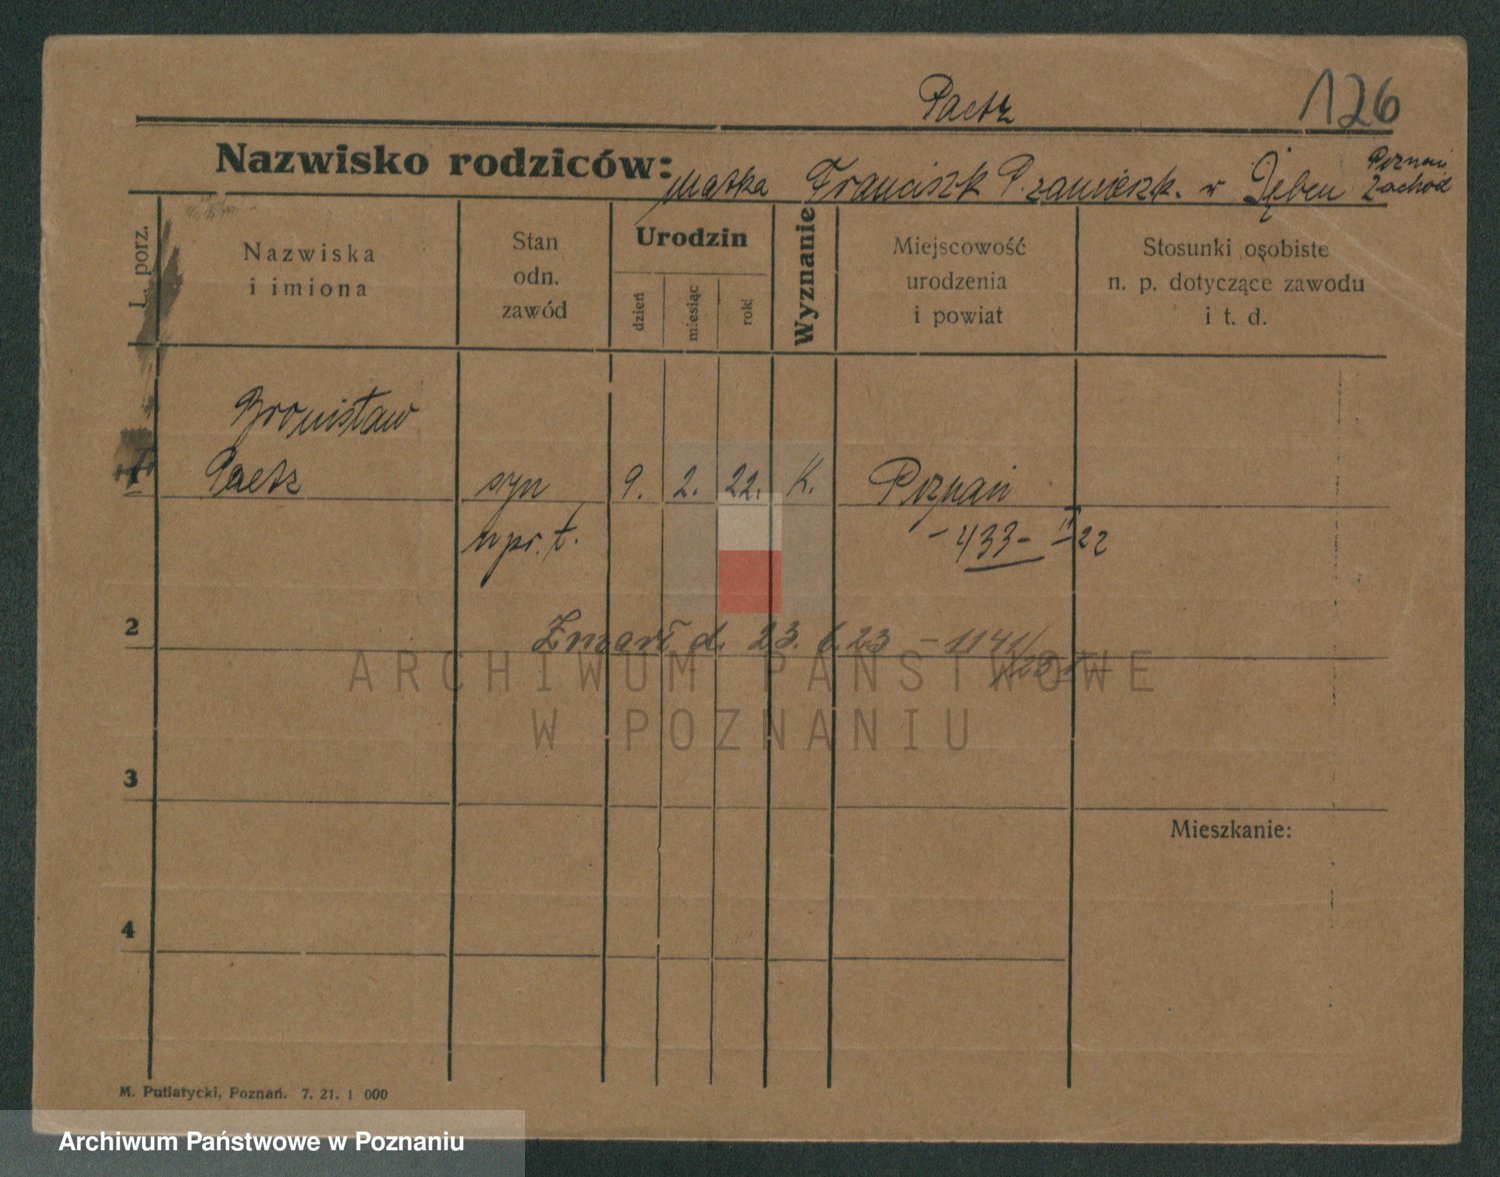 Paetz
126
Nazwisko rodziców: Matka Franciszk P. zamieszk. w Dęben Poznań Zachód
L. porz.
Nazwiska i imiona
Stan odn. zawód
Urodzin
dzień
miesiąc
rok
Wyznanie
Miejscowość urodzenia i powiat
Stosunki osobiste n. p. dotyczące zawodu i t. d.
Bronisław
1 Paetz syn 9. 2. 22. K. Poznań
npr. t. -433- II-22
2 Zmarł d. 23. 6. 23 - 1141/
ARCHIWUM PAŃSTWOWE
W POZNANIU
3
Mieszkanie:
4
M. Putiatycki, Poznań. 7. 21. 1 000
Archiwum Państwowe w Poznaniu